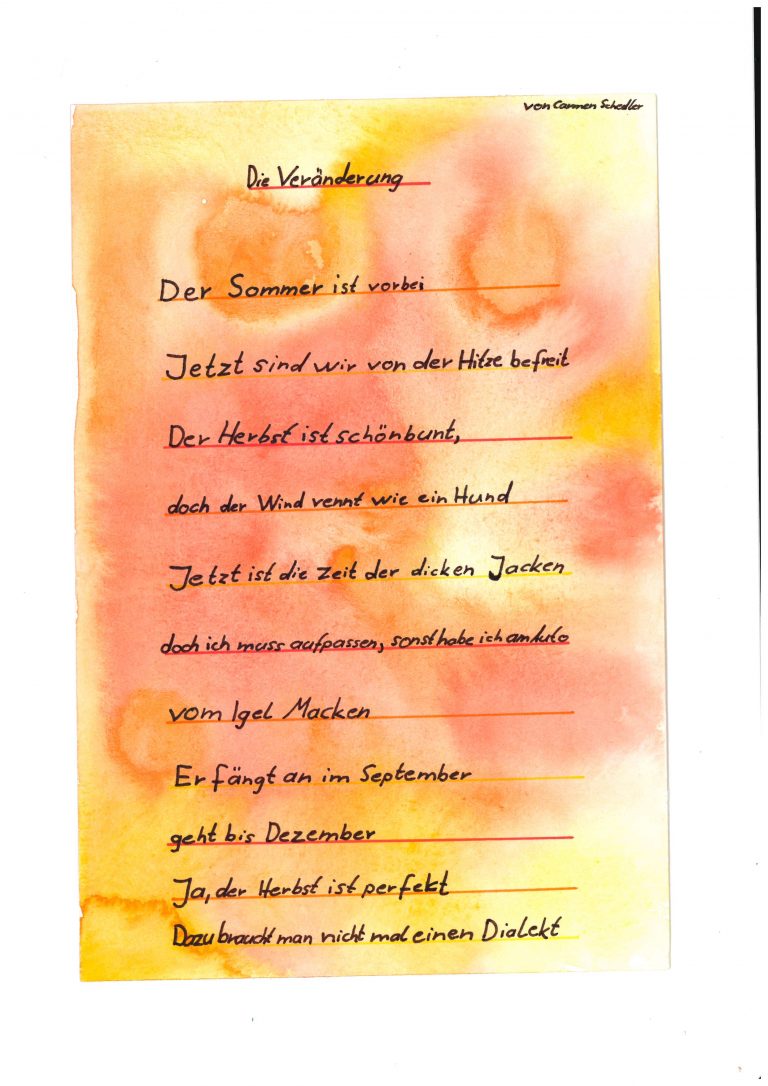 von Carmen Schedler
Die Veränderung
Der Sommer ist vorbei
Jetzt sind wir von der Hitze befreit
Der Herbst ist schönbunt,
doch der Wind rennt wie ein Hund
Jetzt ist die Zeit der dicken Jacken
doch ich muss aufpassen, sonst habe ich am Auto
vom Igel Macken
Er fängt an im September
geht bis Dezember
Ja, der Herbst ist perfekt
Dazu braucht man nicht mal einen Dialekt